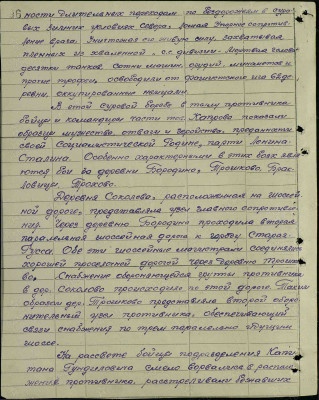 ности длительных переходов по бездорожью в суро-
вых зимних условиях севера, ломая упорное сопротив-
ление врага. Уничтожая его живую силу, захватывая
пленных из хваленной с.с. дивизии "Мертвая голова"
десятки танков, сотни машин, орудий, минометов и
прочие трофеи, освободили от фашистского ига 6
деревни, оккупированные немцами.
В этой суровой борьбе в тылу противника
бойцы и командиры части тов. Капрова показали
образцы мужества, отваги и геройства, преданности
своей Социалистической Родине, партии Ленина-
Сталина. Особенно характерными в этих боях явля-
ются бои за деревни Бородино, Трошково,
Трохово.
Деревня Соколово, расположенная на шоссей-
ной дороге, представляла узел главного сопротивле-
ния. Через деревню Бородино проходила вторая
параллельная шоссейная дорога к городу Старая-
Русса. Обе эти шоссейные магистрали соединялись
хорошей проселочной дорогой через деревню Трошко-
во. Снабжение обороняющейся группы противника
в дер. Соколово происходило по этой дороге. Таким
образом дер. Трошково представляла второй оборо-
нительный узел противника, обеспечивающий
связи снабжения по трем параллельно идущим
шоссе.
На рассвете бойцы подразделения Капи-
тана Гундиловича смело ворвались в располо-
жения противника, расстреливали бежавших